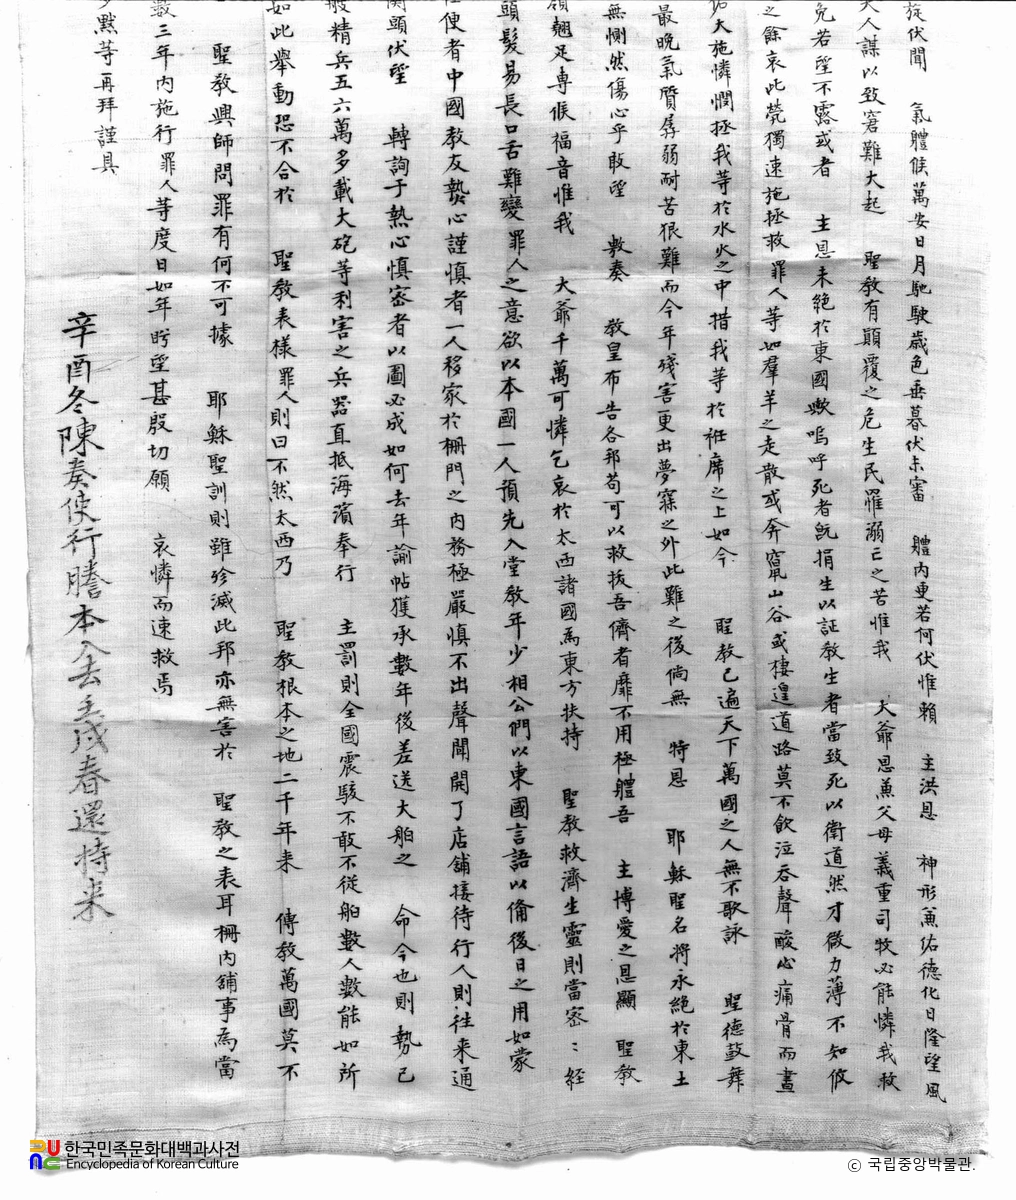 旋伏聞 氣體候萬安日月馳駛歲色垂暮伏未審 體內更若何伏惟賴 主洪恩 神形兼佑德化日隆望風
人謀以致窘難大起 聖教有顚覆之危生民罹溺亡之苦惟我 大爺恩兼父母義重司牧必能憐我救
免若望不露或者 主恩未絕於東國歟嗚呼死者旣捐生以証教生者當致死以衛道然才微力薄不知攸
之餘哀此煢獨速施拯救罪人等如羣羊之走散或奔竄山谷或棲遑道路莫不飮泣呑聲酸心痛骨而晝
大施憐憫拯我等於水火之中措我等於袵席之上如今 聖教已遍天下萬國之人無不歌詠 聖德鼓舞
最晩氣質孱弱耐苦狠難而今年殘害更出夢寐之外此難之後倘無 特恩 耶穌聖名將永絕於東土
無惻然傷心乎敢望 敷奏 教皇布告各邦苟可以救拔吾儕者靡不用極體吾 主博愛之恩顯 聖教
翹足専候福音惟我 大爺千萬可憐乞哀於太西諸國爲東方扶持 聖教救濟生靈則當密密經
頭髮易長口舌難變罪人之意欲以本國一人預先入堂教年少相公們以東國言語以備後日之用如蒙
使者中國教友熱心謹愼者一人移家於柵門之內務極嚴愼不出聲聞開了店舖接待行人則往來通
側頭伏望 轉詢于熱心愼密者以圖必成如何去年諭帖獲承數年後差送大舶之 命今也則勢已
精兵五六萬多載大砲等利害之兵器直抵海濱奉行 主罰則全國震駭不敢不從舶數人數能如所
如此舉動恐不合於 聖教表樣罪人則曰不然太西乃 聖教根本之地二千年來 傳教萬國莫不
聖教興師問罪有何不可據 耶穌聖訓則雖殄滅此邦亦無害於 聖教之表耳柵內舖事爲當
數三年內施行罪人等度日如年盻望甚殷切願 哀憐而速救焉
多默等再拜謹具
辛酉冬陳奏使行謄本入去壬戌春還持來
한국민족문화대백과사전
Encyclopedia of Korean Culture
© 국립중앙박물관.